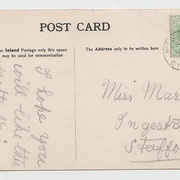 POST CARD
For Inland Postage only this space
may be used for communication
The Address only to be written here
I hope you
will like this
Miss Mar
Ingestre
Staffo